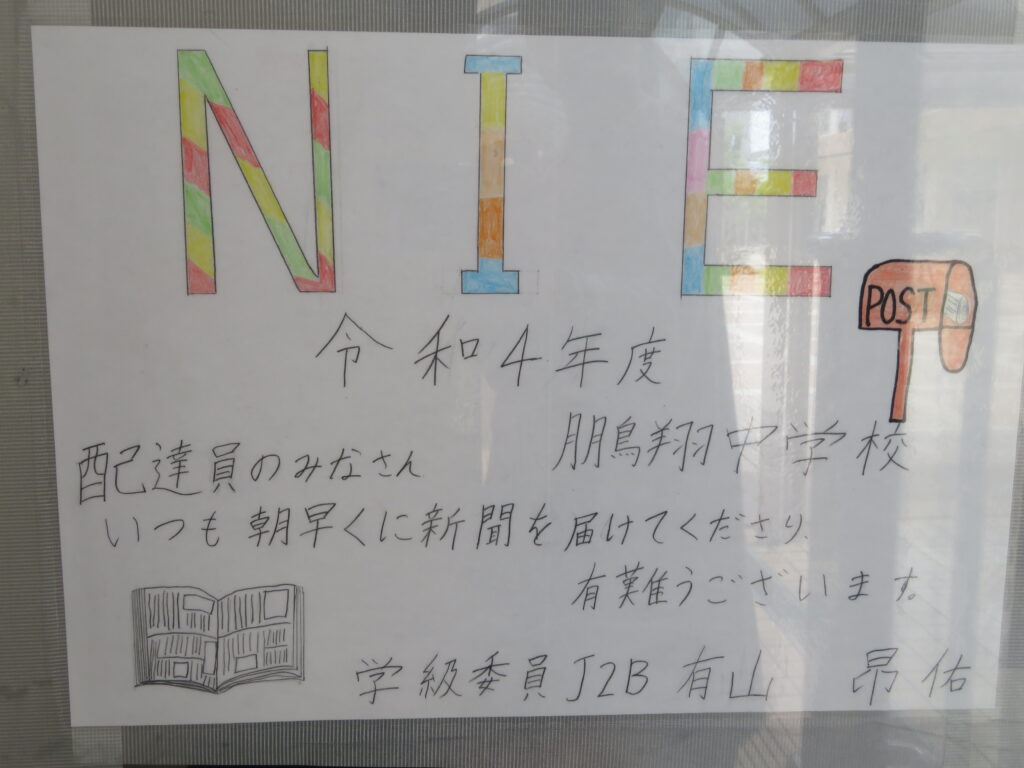 NIE
POST
令和4年度
鵬翔中学校
配達員のみなさん
いつも朝早くに新聞を届けてくださり、
有難うございます。
学級委員J2B 有山 昂佑